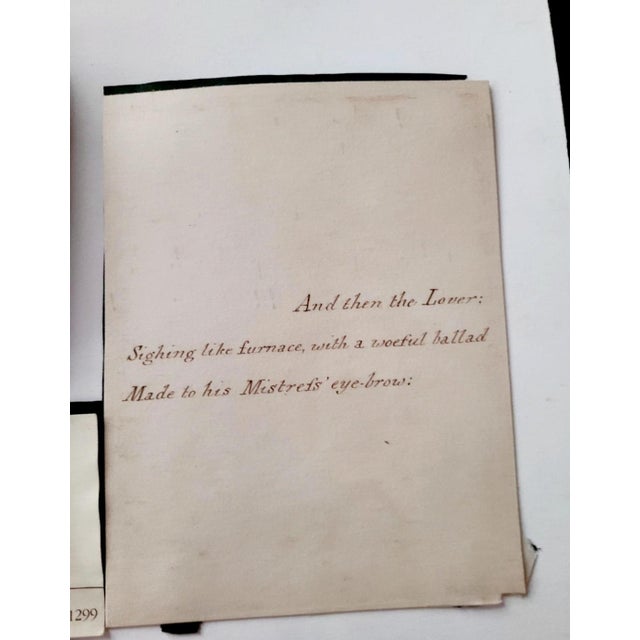 And then the Lover:
Sighing like furnace, with a woeful ballad
Made to his Mistreſs' eye-brow:
1299